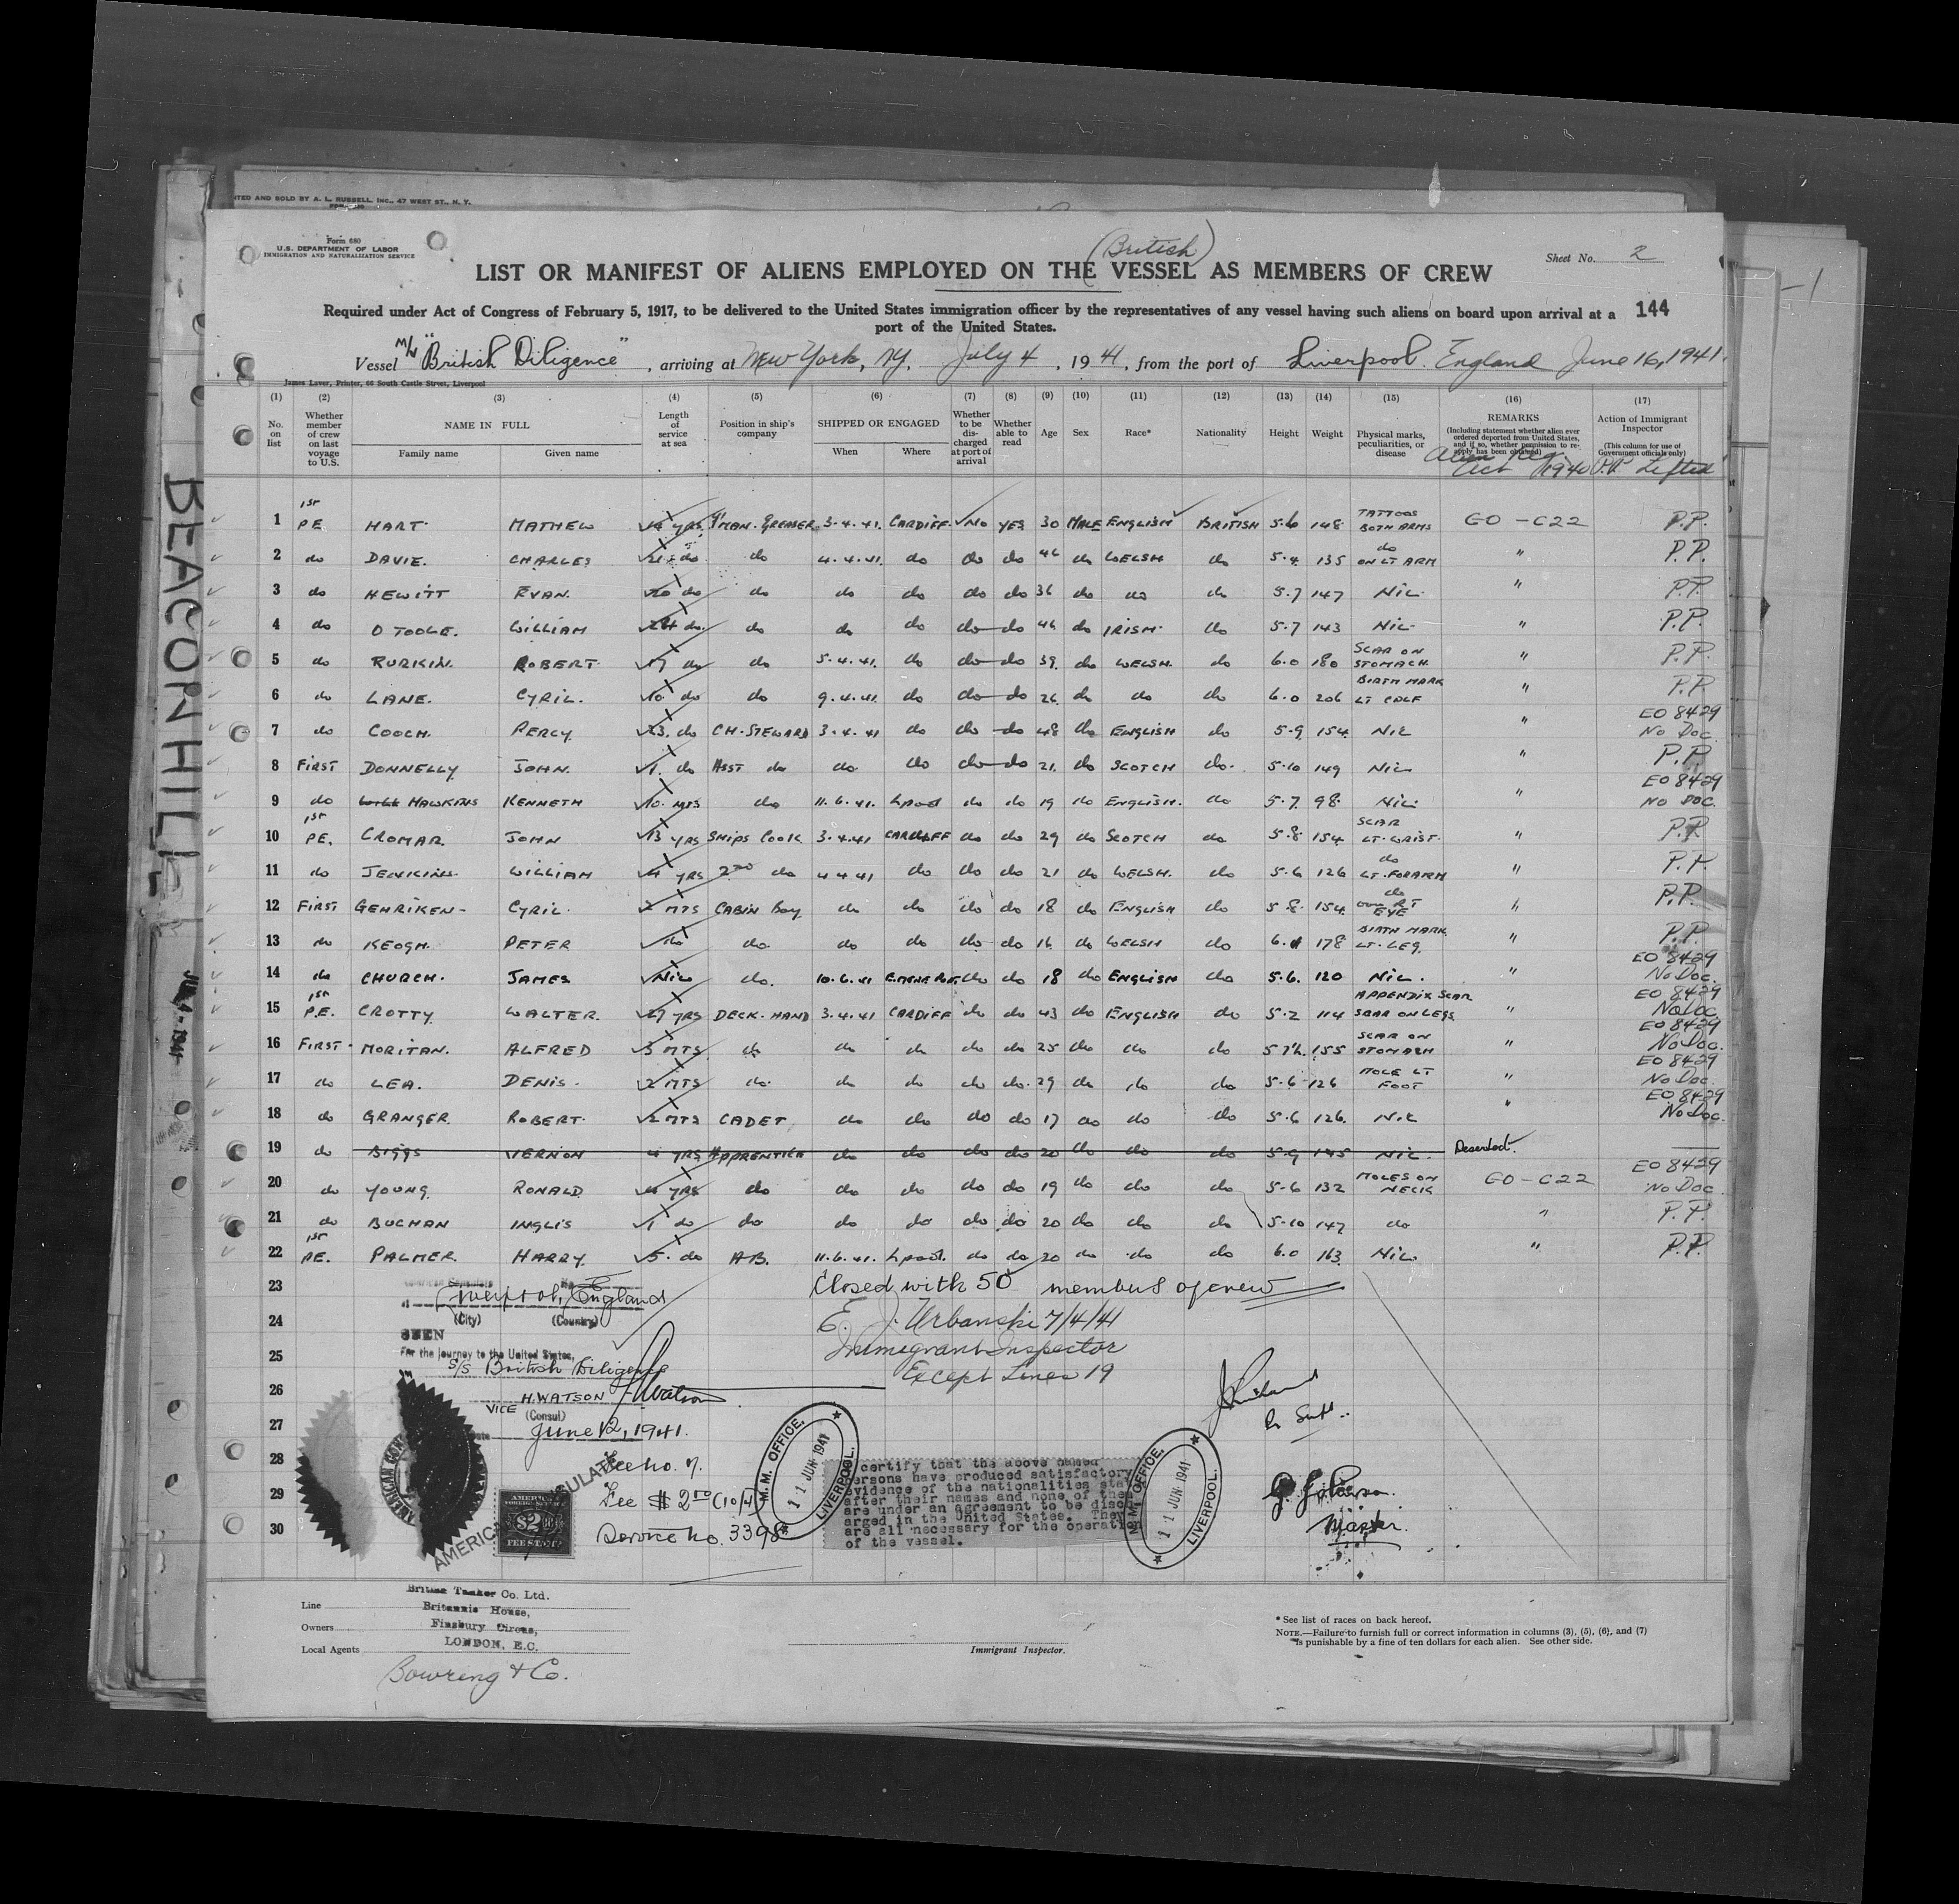 BEACON HILL
JUL 4 - 1941
ITED AND SOLD BY A. L. RUSSELL, INC., 47 WEST ST., N. Y.
Form 680
U.S. DEPARTMENT OF LABOR
IMMIGRATION AND NATURALIZATION SERVICE
(British)
Sheet No. 2
LIST OR MANIFEST OF ALIENS EMPLOYED ON THE VESSEL AS MEMBERS OF CREW
Required under Act of Congress of February 5, 1917, to be delivered to the United States immigration officer by the representatives of any vessel having such aliens on board upon arrival at a
port of the United States.
144
Vessel M/V "British Diligence", arriving at New York, NY. July 4, 1941, from the port of Liverpool. England June 16, 1941.
James Laver, Printer, 66 South Castle Street, Liverpool
(1) (2) (3) (4) (5) (6) (7) (8) (9) (10) (11) (12) (13) (14) (15) (16) (17)
No. on list
Whether member of crew on last voyage to U.S.
NAME IN FULL
Family name Given name
Length of service at sea
Position in ship's company
SHIPPED OR ENGAGED
When Where
Whether to be discharged at port of arrival
Whether able to read
Age Sex Race* Nationality Height Weight
Physical marks, peculiarities, or disease
REMARKS
(Including statement whether alien ever ordered deported from United States, and if so, whether permission to reapply has been obtained)
Alien Reg. Act 1940
Action of Immigrant Inspector
(This column for use of Government officials only)
P.P. Lifted
1 1ST PE HART MATHEW YRS P'MAN. GREASER 3.4.41. CARDIFF NO YES 30 MALE ENGLISH BRITISH 5.6 148 TATTOOS BOTH ARMS GO-C22 P.P.
2 do DAVIE. CHARLES do do 4.4.41. do do do 46 do WELSH do 5.4 135 do ON LT ARM " P.P.
3 do HEWITT EVAN. do do do do do do 36 do do do 5.7 147 NIL " P.P.
4 do O TOOLE. WILLIAM 24 do. do do do do do 46 do IRISH do 5.7 143 NIL " P.P.
5 do RURKIN. ROBERT 17 do do 5.4.41. do do do 39. do WELSH. do 6.0 180 SCAR ON STOMACH. " P.P.
6 do LANE. CYRIL. 10 do do 9.4.41. do do do 26 do do do 6.0 206 BIRTH MARK LT CALF " P.P.
7 do COOCH. PERCY 23. do CH. STEWARD 3.4.41 do do do 48 do ENGLISH do 5.9 154 NIL " EO 8429 No Doc.
8 FIRST DONNELLY JOHN. 1. do ASST do do. do do do 21. do SCOTCH do. 5.10 149 NIL " P.P.
9 do HAWKINS KENNETH 10. MTS do 11.6.41. Lpool do do 19 do ENGLISH. do 5.7. 98. NIL. " EO 8429 NO DOC.
10 1ST PE. CROMAR. JOHN 13 YRS SHIPS COOK 3.4.41 CARDIFF do do 29 do SCOTCH do 5.8. 154 SCAR LT. WRIST. " P.P.
11 do JENKINS. WILLIAM 4 YRS 2ND do 4 4 41 do do do 21 do WELSH. do 5.6 126 do LT. FORARM " P.P.
12 FIRST GEHRIKEN- CYRIL. 2 MTS CABIN BOY do do do do 18 do ENGLISH do 5 8. 154. do over RT EYE " P.P.
13 do KEOGH. PETER do do. do do do do 16 do WELSH do 6. 178 BIRTH MARK LT. LEG. " P.P.
14 do CHURCH. JAMES NIL do. 10.6.41 do do 18 do ENGLISH do 5.6. 120 NIL. " EO 8429 No Doc.
15 1ST P.E. CROTTY WALTER. 27 YRS DECK. HAND 3.4.41 CARDIFF do do 43 do ENGLISH do 5.2 114 APPENDIX SCAR SCAR ON LEGS " EO 8429 No Doc.
16 FIRST. MORITAN. ALFRED 3 MTS. do do do do do 25 do do do 5 7½. 155 SCAR ON STOMACH " EO 8429 No Doc.
17 do LEA. DENIS. 2 MTS do. do do do do. 29 do do do 5.6 126 MOLE LT FOOT " EO 8429 No Doc.
18 do GRANGER. ROBERT. 2 MTS CADET do do do do 17 do do do 5.6 126. NIL " EO 8429 No Doc.
19 do BIGGS VERNON 4 YRS APPRENTICE do do do do 20 do do do 5.9 145 NIL. Deserted.
20 do YOUNG. RONALD. 4 YRS do do do do do 19 do do do 5.6 132 MOLES ON NECK GO-C22 EO 8429 No Doc.
21 do BUCHAN INGLIS 1 do do do do do do 20 do do do 5.10 147 do " P.P.
22 1ST PE. PALMER. HARRY. 5. do A.B. 11.6.41. Lpool. do do 20 do do do 6.0 163 NIL " P.P.
23 Closed with 50 members of crew
24 E. J. Urbanski 7/4/41
25 Immigrant Inspector
26 Except Line 19
27
28
29
30
Liverpool, England
(City) (Country)
SEEN
For the journey to the United States,
S/S British Diligence
H. WATSON HWatson
VICE (Consul)
June 12, 1941.
Fee no. 7.
Fee $ 2.00 (10/-)
Service no. 3398
AMERICAN CONSULATE
$2
FEE STAMP
M.M. OFFICE.
11 JUN 1941
LIVERPOOL.
certify that the above named
ersons have produced satisfactory
evidence of the nationalities sta
after their names and none of them
are under an agreement to be disch
arged in the United States. They
are all necessary for the operati
of the vessel.
M.M. OFFICE.
11 JUN 1941
LIVERPOOL.
Master.
Line British Tanker Co. Ltd.
Britannic House,
Owners Finsbury Circus,
Local Agents LONDON, E.C.
Bowring & Co.
Immigrant Inspector.
* See list of races on back hereof.
NOTE.—Failure to furnish full or correct information in columns (3), (5), (6), and (7)
is punishable by a fine of ten dollars for each alien. See other side.